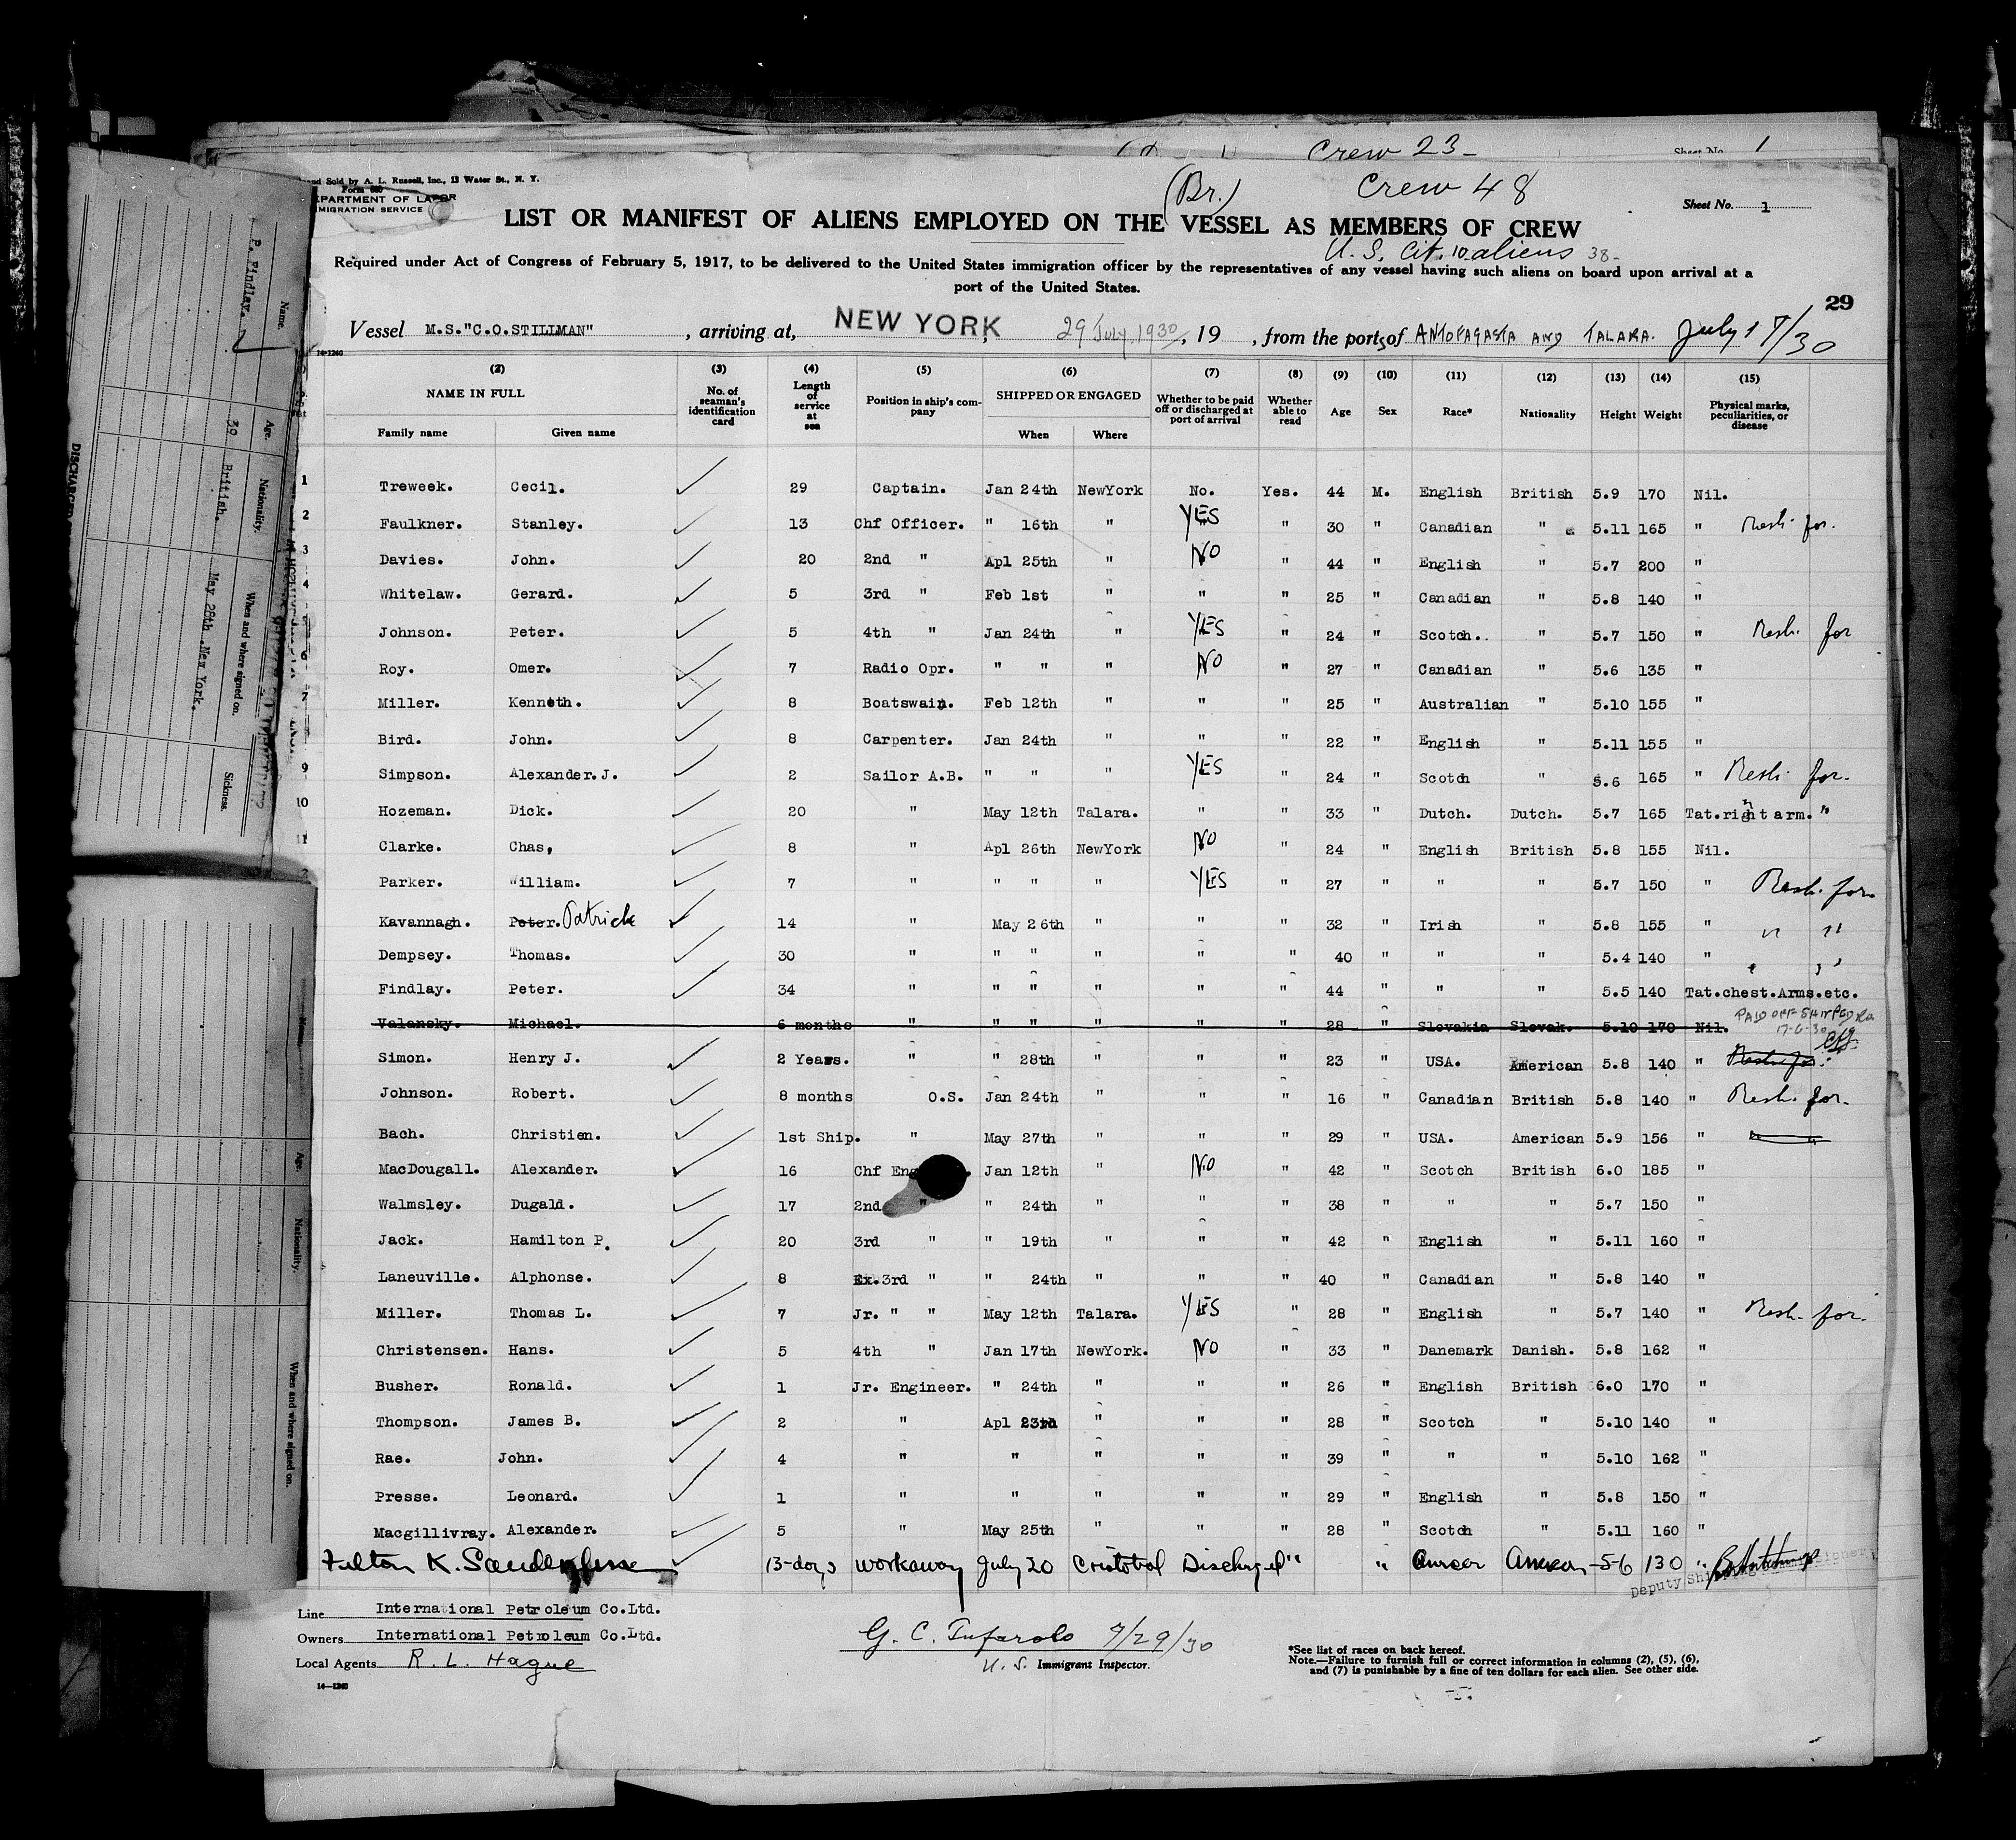 Crew 23-
Sheet No. 1
and Sold by A. L. Russell, Inc., 13 Water St., N. Y.
Form 680
DEPARTMENT OF LABOR
IMMIGRATION SERVICE
(Br.)
Crew 48
Sheet No. 1
LIST OR MANIFEST OF ALIENS EMPLOYED ON THE VESSEL AS MEMBERS OF CREW
U. S. Cit. 10 aliens 38-
Required under Act of Congress of February 5, 1917, to be delivered to the United States immigration officer by the representatives of any vessel having such aliens on board upon arrival at a
port of the United States.
29
Vessel M.S."C.O.STILLMAN", arriving at, NEW YORK, 29 July 1930, 19 , from the ports of ANTOFAGASTA AND TALARA. July 17/30
14-1240
(2) (3) (4) (5) (6) (7) (8) (9) (10) (11) (12) (13) (14) (15)
NAME IN FULL No. of seaman's identification card Length of service at sea Position in ship's company SHIPPED OR ENGAGED Whether to be paid off or discharged at port of arrival Whether able to read Age Sex Race* Nationality Height Weight Physical marks, peculiarities, or disease
Family name Given name When Where
1 Treweek. Cecil. 29 Captain. Jan 24th NewYork No. Yes. 44 M. English British 5.9 170 Nil.
2 Faulkner. Stanley. 13 Chf Officer. " 16th " YES " 30 " Canadian " 5.11 165 " Resh. for.
3 Davies. John. 20 2nd " Apl 25th " NO " 44 " English " 5.7 200 "
4 Whitelaw. Gerard. 5 3rd " Feb 1st " " " 25 " Canadian " 5.8 140 "
5 Johnson. Peter. 5 4th " Jan 24th " YES " 24 " Scotch.. " 5.7 150 " Resh. for
6 Roy. Omer. 7 Radio Opr. " " " NO " 27 " Canadian " 5.6 135 "
7 Miller. Kenneth. 8 Boatswain. Feb 12th " " " 25 " Australian " 5.10 155 "
Bird. John. 8 Carpenter. Jan 24th " " " 22 " English " 5.11 155 "
9 Simpson. Alexander.J. 2 Sailor A.B. " " " YES " 24 " Scotch " 5.6 165 " Resh. for.
10 Hozeman. Dick. 20 " May 12th Talara. " " 33 " Dutch. Dutch. 5.7 165 Tat.right arm. " "
11 Clarke. Chas, 8 " Apl 26th NewYork NO " 24 " English British 5.8 155 Nil.
Parker. William. 7 " " " " YES " 27 " " " 5.7 150 " Resh. for.
Kavannagh. Peter. Patrick 14 " May 26th " " " 32 " Irish " 5.8 155 " " "
Dempsey. Thomas. 30 " " " " " " 40 " " " 5.4 140 " " "
Findlay. Peter. 34 " " " " " " 44 " " " 5.5 140 Tat.chest.Arms.etc.
Valansky. Michael. 6 months " " " " " " 28 " Slovakia Slovak. 5.10 170 Nil. PAID OFF
Simon. Henry J. 2 Years. " " 28th " " " 23 " USA. American 5.8 140 " Resh. for.
Johnson. Robert. 8 months O.S. Jan 24th " " " 16 " Canadian British 5.8 140 " Resh. for.
Bach. Christien. 1st Ship. " May 27th " " " 29 " USA. American 5.9 156 "
MacDougall. Alexander. 16 Chf Eng Jan 12th " NO " 42 " Scotch British 6.0 185 "
Walmsley. Dugald. 17 2nd " " 24th " " " 38 " " " 5.7 150 "
Jack. Hamilton P. 20 3rd " " 19th " " " 42 " English " 5.11 160 "
Laneuville. Alphonse. 8 Ex.3rd " " 24th " " " 40 " Canadian " 5.8 140 "
Miller. Thomas L. 7 Jr. " " May 12th Talara. YES " 28 " English " 5.7 140 " Resh. for.
Christensen. Hans. 5 4th " Jan 17th NewYork. NO " 33 " Danemark Danish. 5.8 162 "
Busher. Ronald. 1 Jr. Engineer. " 24th " " " 26 " English British 6.0 170 "
Thompson. James B. 2 " Apl 23rd " " " 28 " Scotch " 5.10 140 "
Rae. John. 4 " " " " " 39 " " " 5.10 162 "
Presse. Leonard. 1 " " " " " 29 " English " 5.8 150 "
Macgillivray. Alexander. 5 " May 25th " " " 28 " Scotch " 5.11 160 "
Fulton K. 13-days workaway July 20 Cristobal Discharged " " 5-6 130 "
Deputy Shipping Commissioner
Line International Petroleum Co.Ltd.
Owners International Petroleum Co.Ltd.
Local Agents R. L. Hague
14-1240
G. C. Tufarolo 7/29/30
U. S. Immigrant Inspector.
*See list of races on back hereof.
Note.—Failure to furnish full or correct information in columns (2), (5), (6),
and (7) is punishable by a fine of ten dollars for each alien. See other side.
Name. Age. Nationality. When and where signed on. Sickness.
P. Findlay. 30 British. May 28th .New York.
Age. Nationality. When and where signed on.